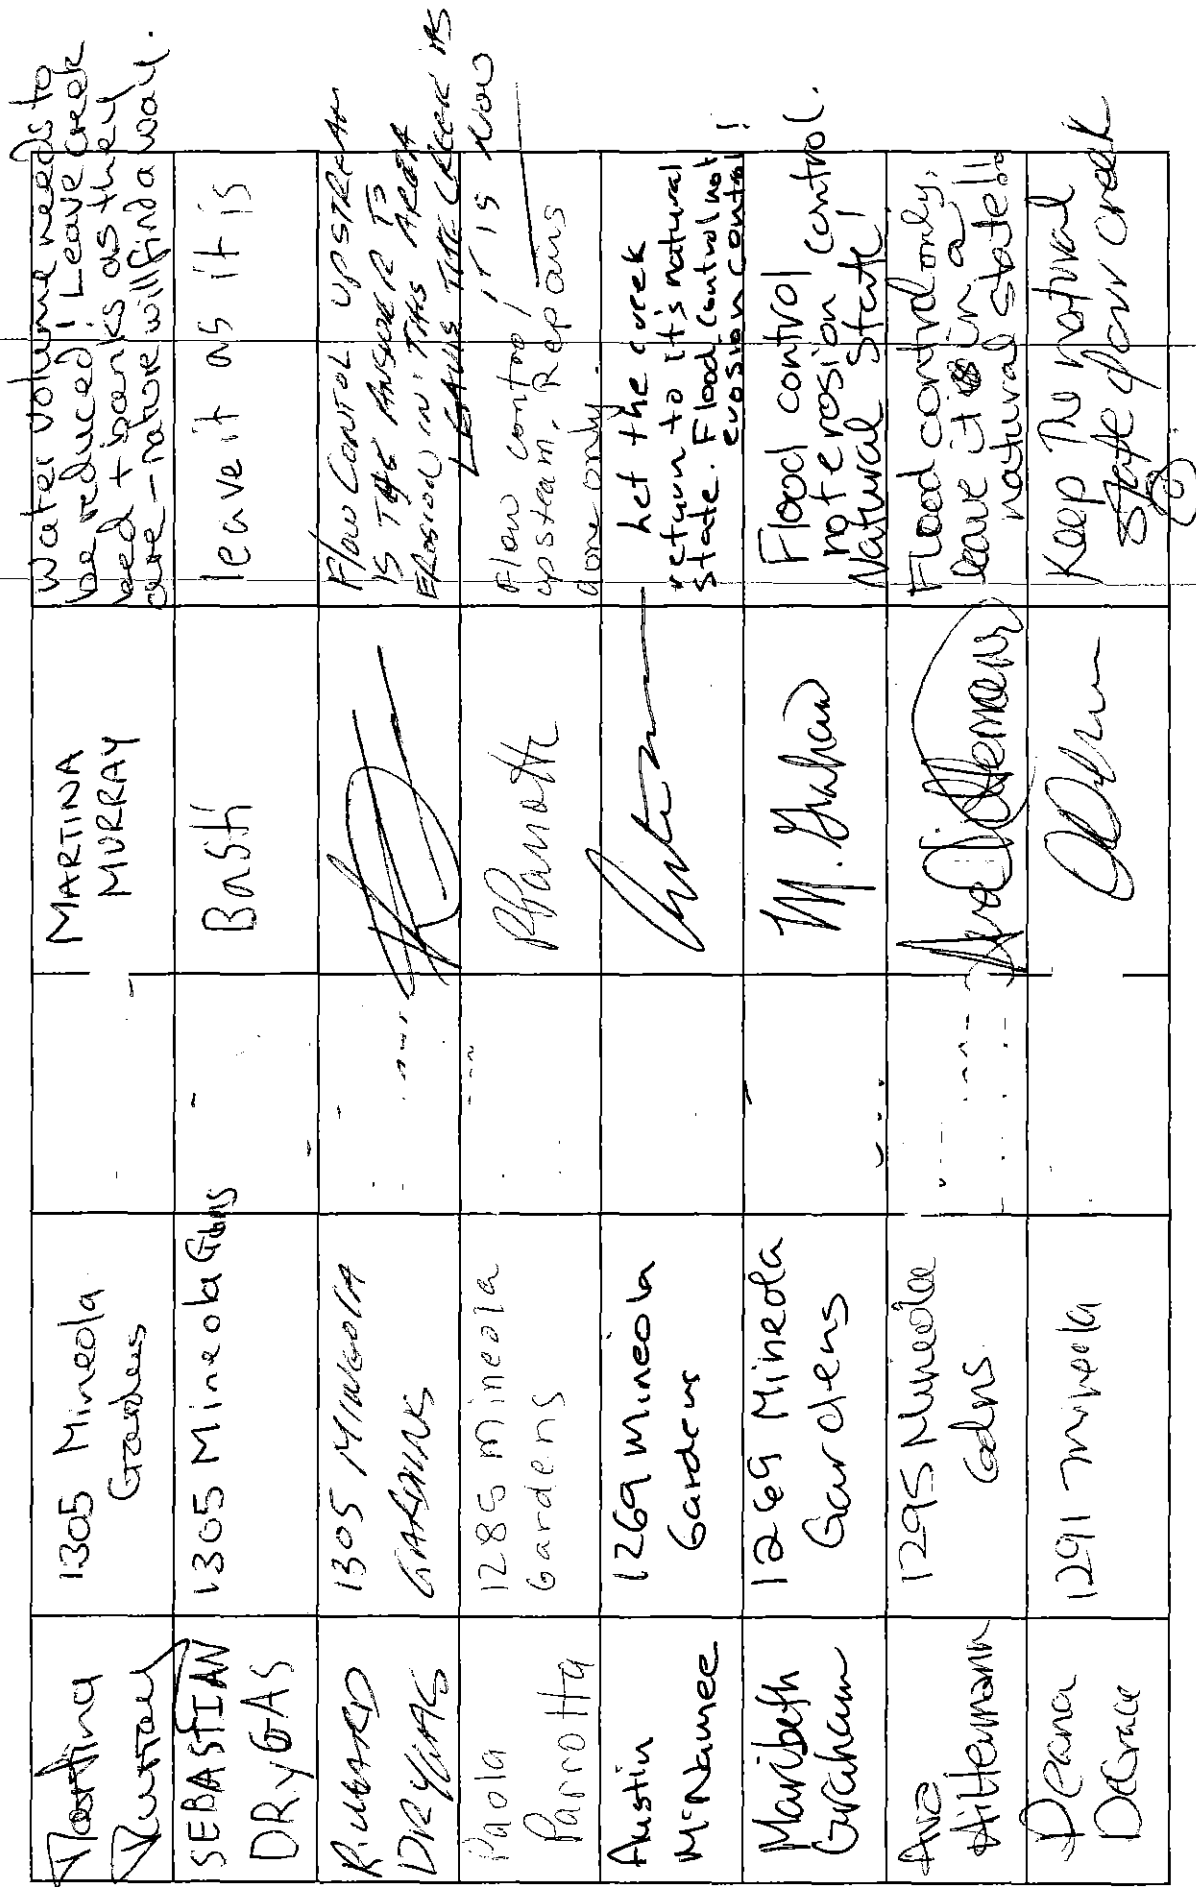 Martina
Murray
1305 Mineola
Gardens
MARTINA
MURRAY
Water volume needs to
be reduced! Leave creek
bed + banks as they
are - nature will find a way.
SEBASTIAN
DRyGAS
1305 Mineola Gdns
Basti
leave it as it is
RICHARD
DRYGAS
1305 MINEOLA
GARDENS
Flow CONTROL UPSTREAM
IS THE ANSWER TO
EROSION IN THIS AREA
LEAVE THE CREEK AS
IT IS NOW
Paola
Parrotta
1285 Mineola
Gardens
PParrotta
Flow control
upsteam. Repairs
done only.
Austin
McNamee
1269 Mineola
Gardens
Let the creek
return to it's natural
state. Flood control not
erosion control!
Maribeth
Graham
1269 Mineola
Gardens
M. Graham
Flood control
not erosion control.
Natural State!
1295 Mineola
Gdns.
Flood control only,
leave it in a
natural state!!
Deana
DeGrace
1291 Mineola
Keep The natural
State of our creek